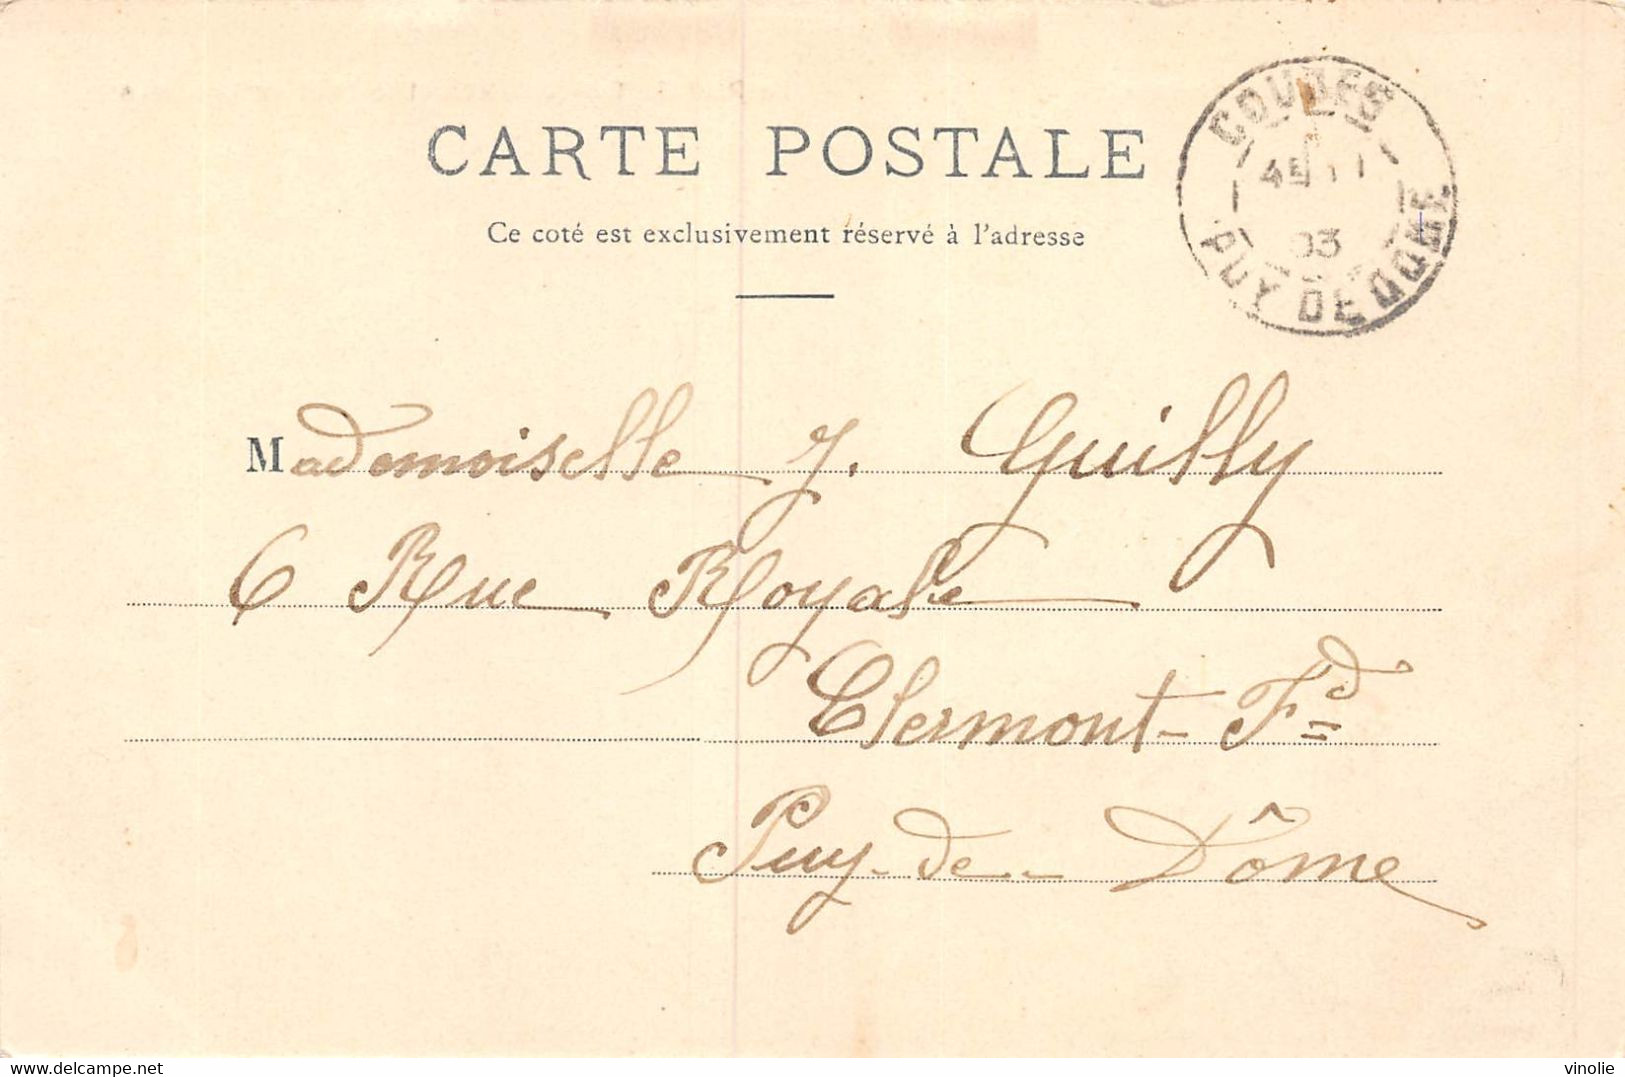 CARTE POSTALE
Ce coté est exclusivement réservé à l'adresse
COUDES
03
PUY DE DOME
Mademoiselle J. Guilly
6 Rue Royale
Clermont-Fd
Puy-de-Dôme
delcampe.net
vinolie